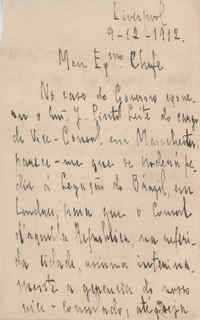 Liverpool
9-12-1912.
Meu Exmo. Chefe
No caso do Governo exone-
rar o Snr. J. Pinto Leite do cargo
de Vice-Consul, em Manchester,
parece-me que se poderá pe-
dir á Legação do Brazil, em
Londres, para que o Consul
d'aquella Republica, na referi-
da cidade, assuma interina-
mente a gerencia do nosso
vice-consulado, até que seja